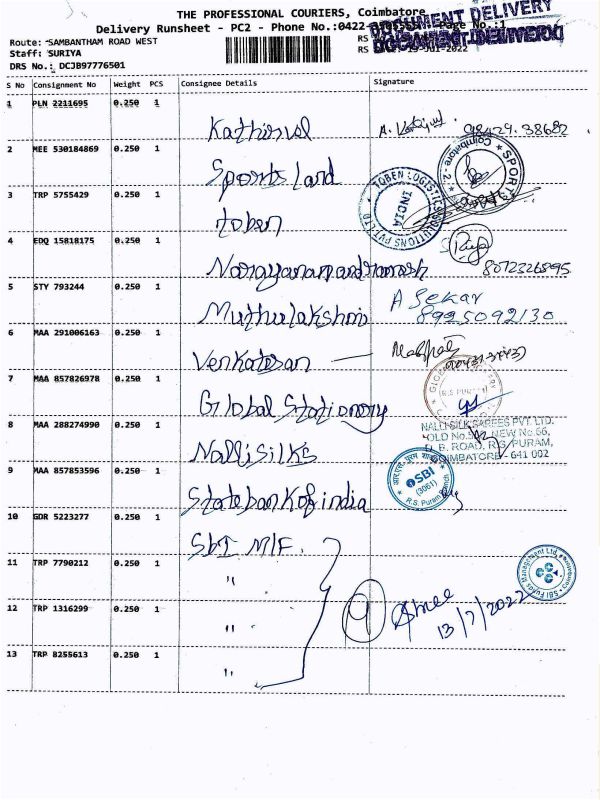 THE PROFESSIONAL COURIERS, Coimbatore
DOCUMENT DELIVERY
Delivery Runsheet - PC2 - Phone No.:0422- Page No.:1
Route: SAMBANTHAM ROAD WEST
Staff: SURIYA
RS
DRS No.: DCJB97776501
RS Date: 13-Jul-2022
S No Consignment No Weight PCS Consignee Details Signature
1 PLN 2211695 0.250 1
Kathirvel 98429.38682
2 MEE 530184869 0.250 1
Sports Land
3 TRP 5755429 0.250 1
TOBEN LOGISTICS SOLUTIONS PVT LTD INDIA
SPORTS Coimbatore - 2.
toben
4 EDQ 15818175 0.250 1
8072326895
5 STY 793244 0.250 1
Muthulakshmi A Sekar
8925092130
6 MAA 291006163 0.250 1
Venkatesan
7 MAA 857826978 0.250 1
(R.S PURAM)
Global Stationory
8 MAA 288274990 0.250 1
NALLI SILK SAREES PVT. LTD.
NEW No.66,
D. B. ROAD, R.S. PURAM,
COIMBATORE - 641 002
Nalli Silks
9 MAA 857853596 0.250 1
SBI
(3061)
R.S. Puram Branch
State bank of india
10 GDR 5223277 0.250 1
SbI M/F.
11 TRP 7790212 0.250 1
"
SBI Funds Management Ltd. Coimbatore
12 TRP 1316299 0.250 1
"
13/7/2022
13 TRP 8255613 0.250 1
"